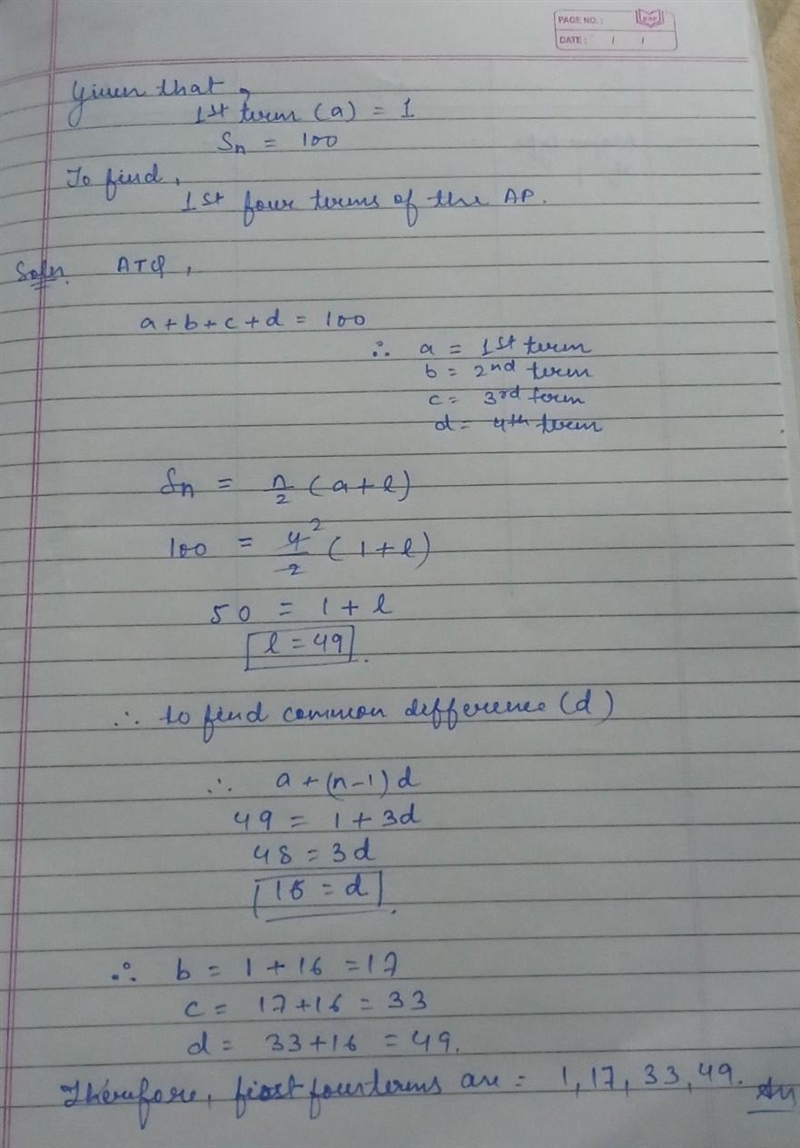 PAGE NO.:
DATE: / /
Given that,
1st term (a) = 1
Sn = 100
To find,
1st four terms of the AP.
Soln. ATQ,
a + b + c + d = 100
∴ a = 1st term
b = 2nd term
c = 3rd term
d = 4th term
Sn = n/2 (a + l)
100 = 4/2 2 (1 + l)
50 = 1 + l
l = 49.
∴ to find common difference (d)
∴ a + (n-1)d
49 = 1 + 3d
48 = 3d
16 = d.
∴ b = 1 + 16 = 17
c = 17 + 16 = 33
d = 33 + 16 = 49.
Therefore, first four terms are = 1, 17, 33, 49. Ans